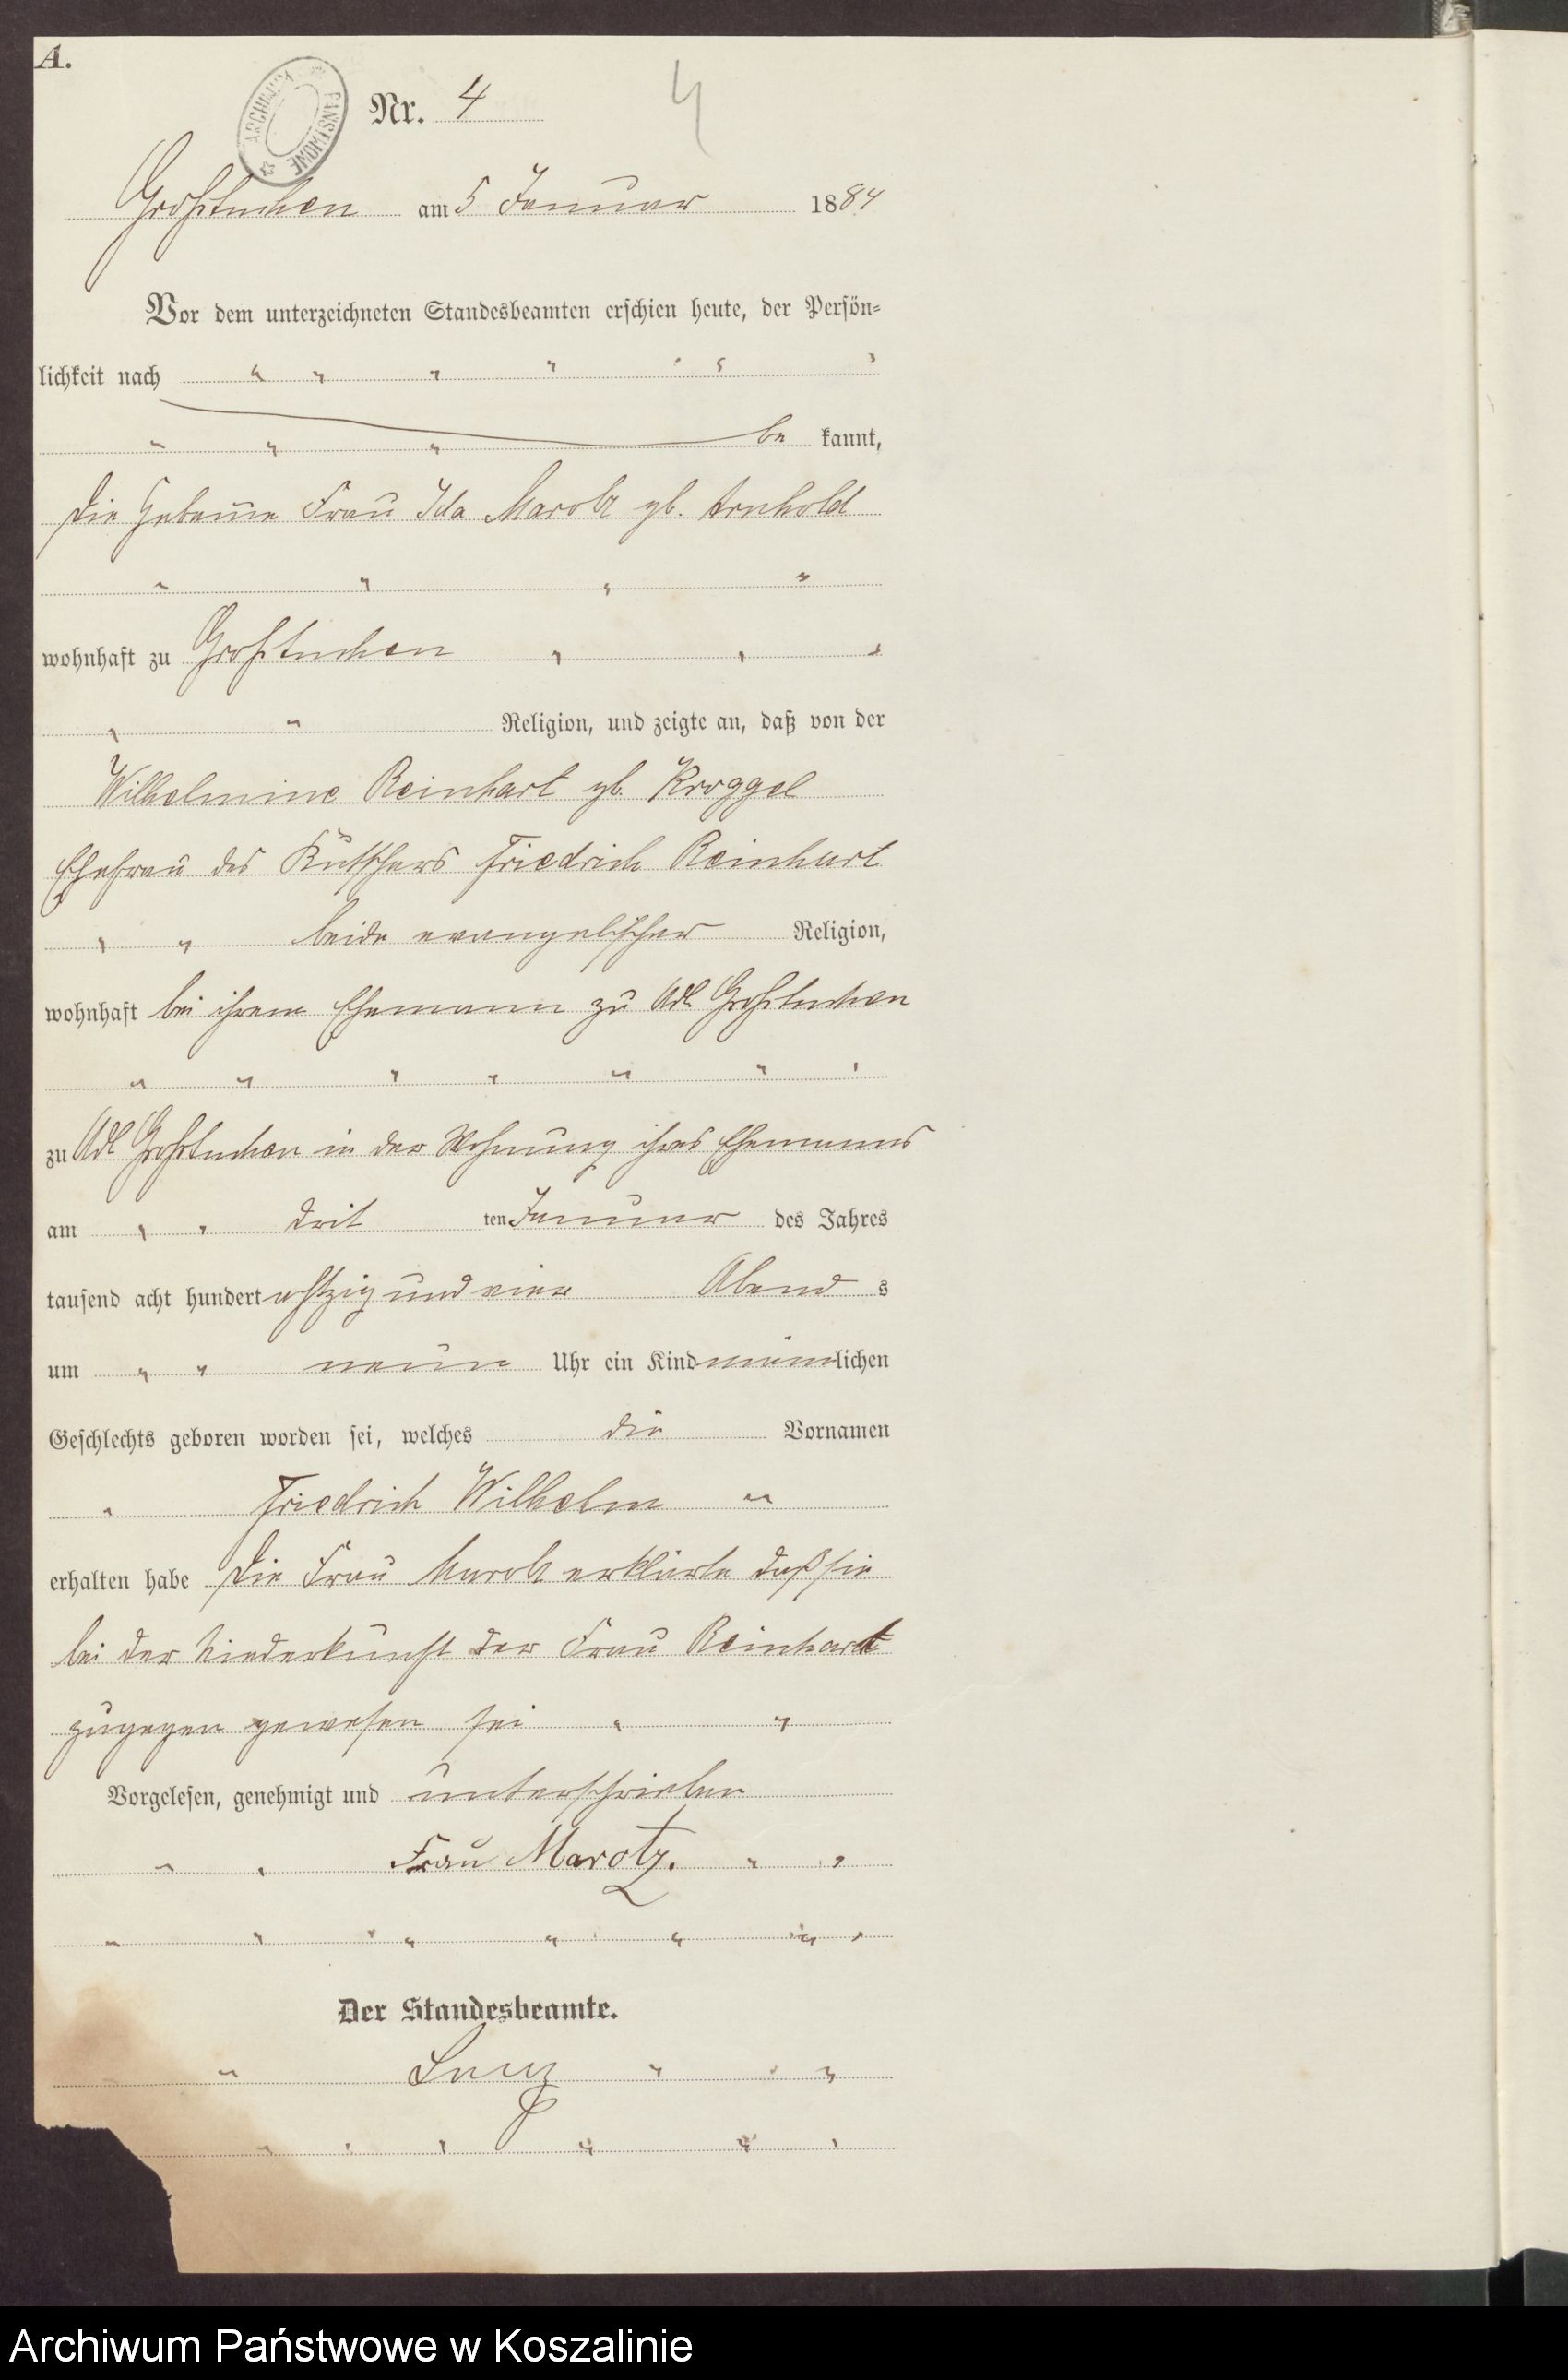 A.
ARCHIWUM PAŃSTWOWE
Nr. 4
4
Großtuchen am 5 Januar 1884
Vor dem unterzeichneten Standesbeamten erschien heute, der Persön-
lichkeit nach
be kannt,
die Hebamme Frau Ida Marotz gb. Arnhold
wohnhaft zu Großtuchen
Religion, und zeigte an, daß von der
Wilhelmine Reinhart gb. Kroggel
Ehefrau des Kutschers Friedrich Reinhart
beide evangelischer Religion,
wohnhaft bei ihrem Ehemann zu Adl Großtuchen
zu Adl Großtuchen in der Wohnung ihres Ehemanns
am drit ten Januar des Jahres
tausend acht hundert achtzig und vier Abend s
um neun Uhr ein Kind männlichen
Geschlechts geboren worden sei, welches die Vornamen
Friedrich Wilhelm
erhalten habe Die Frau Marotz erklärte daß sie
bei der Niederkunft der Frau Reinhart
zugegen gewesen sei
Vorgelesen, genehmigt und unterschrieben
Frau Marotz.
Der Standesbeamte.
Archiwum Państwowe w Koszalinie